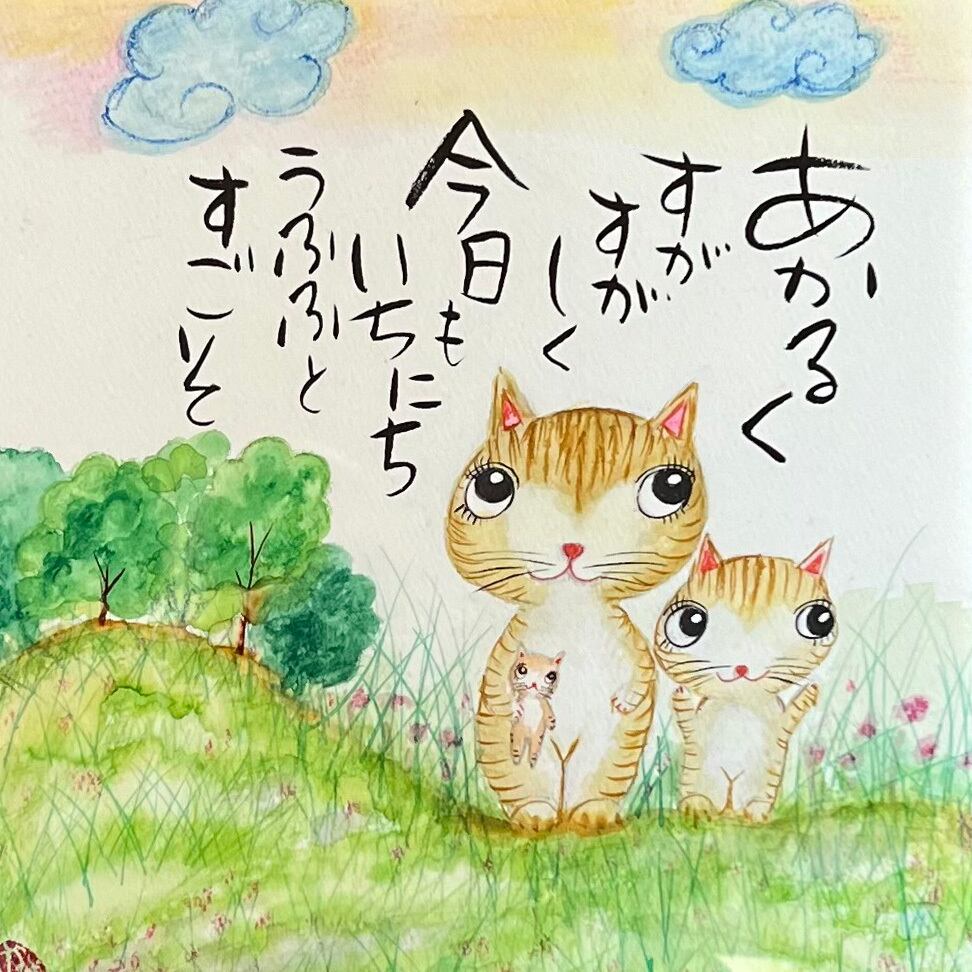 あかるく
すが
すが
しく
今日も
いちにち
うふふと
すごそ